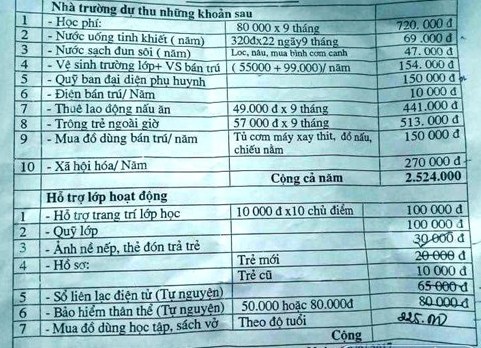 Nhà trường dự thu những khoản sau
1 - Học phí: 80 000 x 9 tháng 720. 000 đ
2 - Nước uống tinh khiết ( năm) 320đx22 ngày9 tháng 69 .000 đ
3 - Nước sạch đun sôi ( năm) Lọc, nấu, mua bình cơm canh 47. 000 đ
4 - Vệ sinh trường lớp+ VS bán trú ( 55000 + 99.000)/ năm 154. 000 đ
5 - Quỹ ban đại diện phụ huynh 150 000 đ
6 - Điện bán trú/ Năm 10 000 đ
7 - Thuê lao động nấu ăn 49.000 đ x 9 tháng 441.000 đ
8 - Trông trẻ ngoài giờ 57 000 đ x 9 tháng 513. 000 đ
9 - Mua đồ dùng bán trú/ năm Tủ cơm máy xay thịt, đồ nấu, 150 000 đ
chiếu nằm
10 - Xã hội hóa/ Năm 270 000 đ
Cộng cả năm 2.524.000
Hỗ trợ lớp hoạt động
1 - Hỗ trợ trang trí lớp học 10 000 đ x10 chủ điểm 100 000 đ
2 - Quỹ lớp 100 000 đ
3 - Ảnh nề nếp, thẻ đón trả trẻ 30 000 đ
4 - Hồ sơ: Trẻ mới 20 000 đ
Trẻ cũ 10 000 đ
5 - Sổ liên lạc điện tử (Tự nguyện) 65 000 đ
6 - Bảo hiểm thân thể (Tự nguyện) 50.000 hoặc 80.000đ 80.000 đ
7 - Mua đồ dùng học tập, sách vở Theo độ tuổi 225.000
Cộng